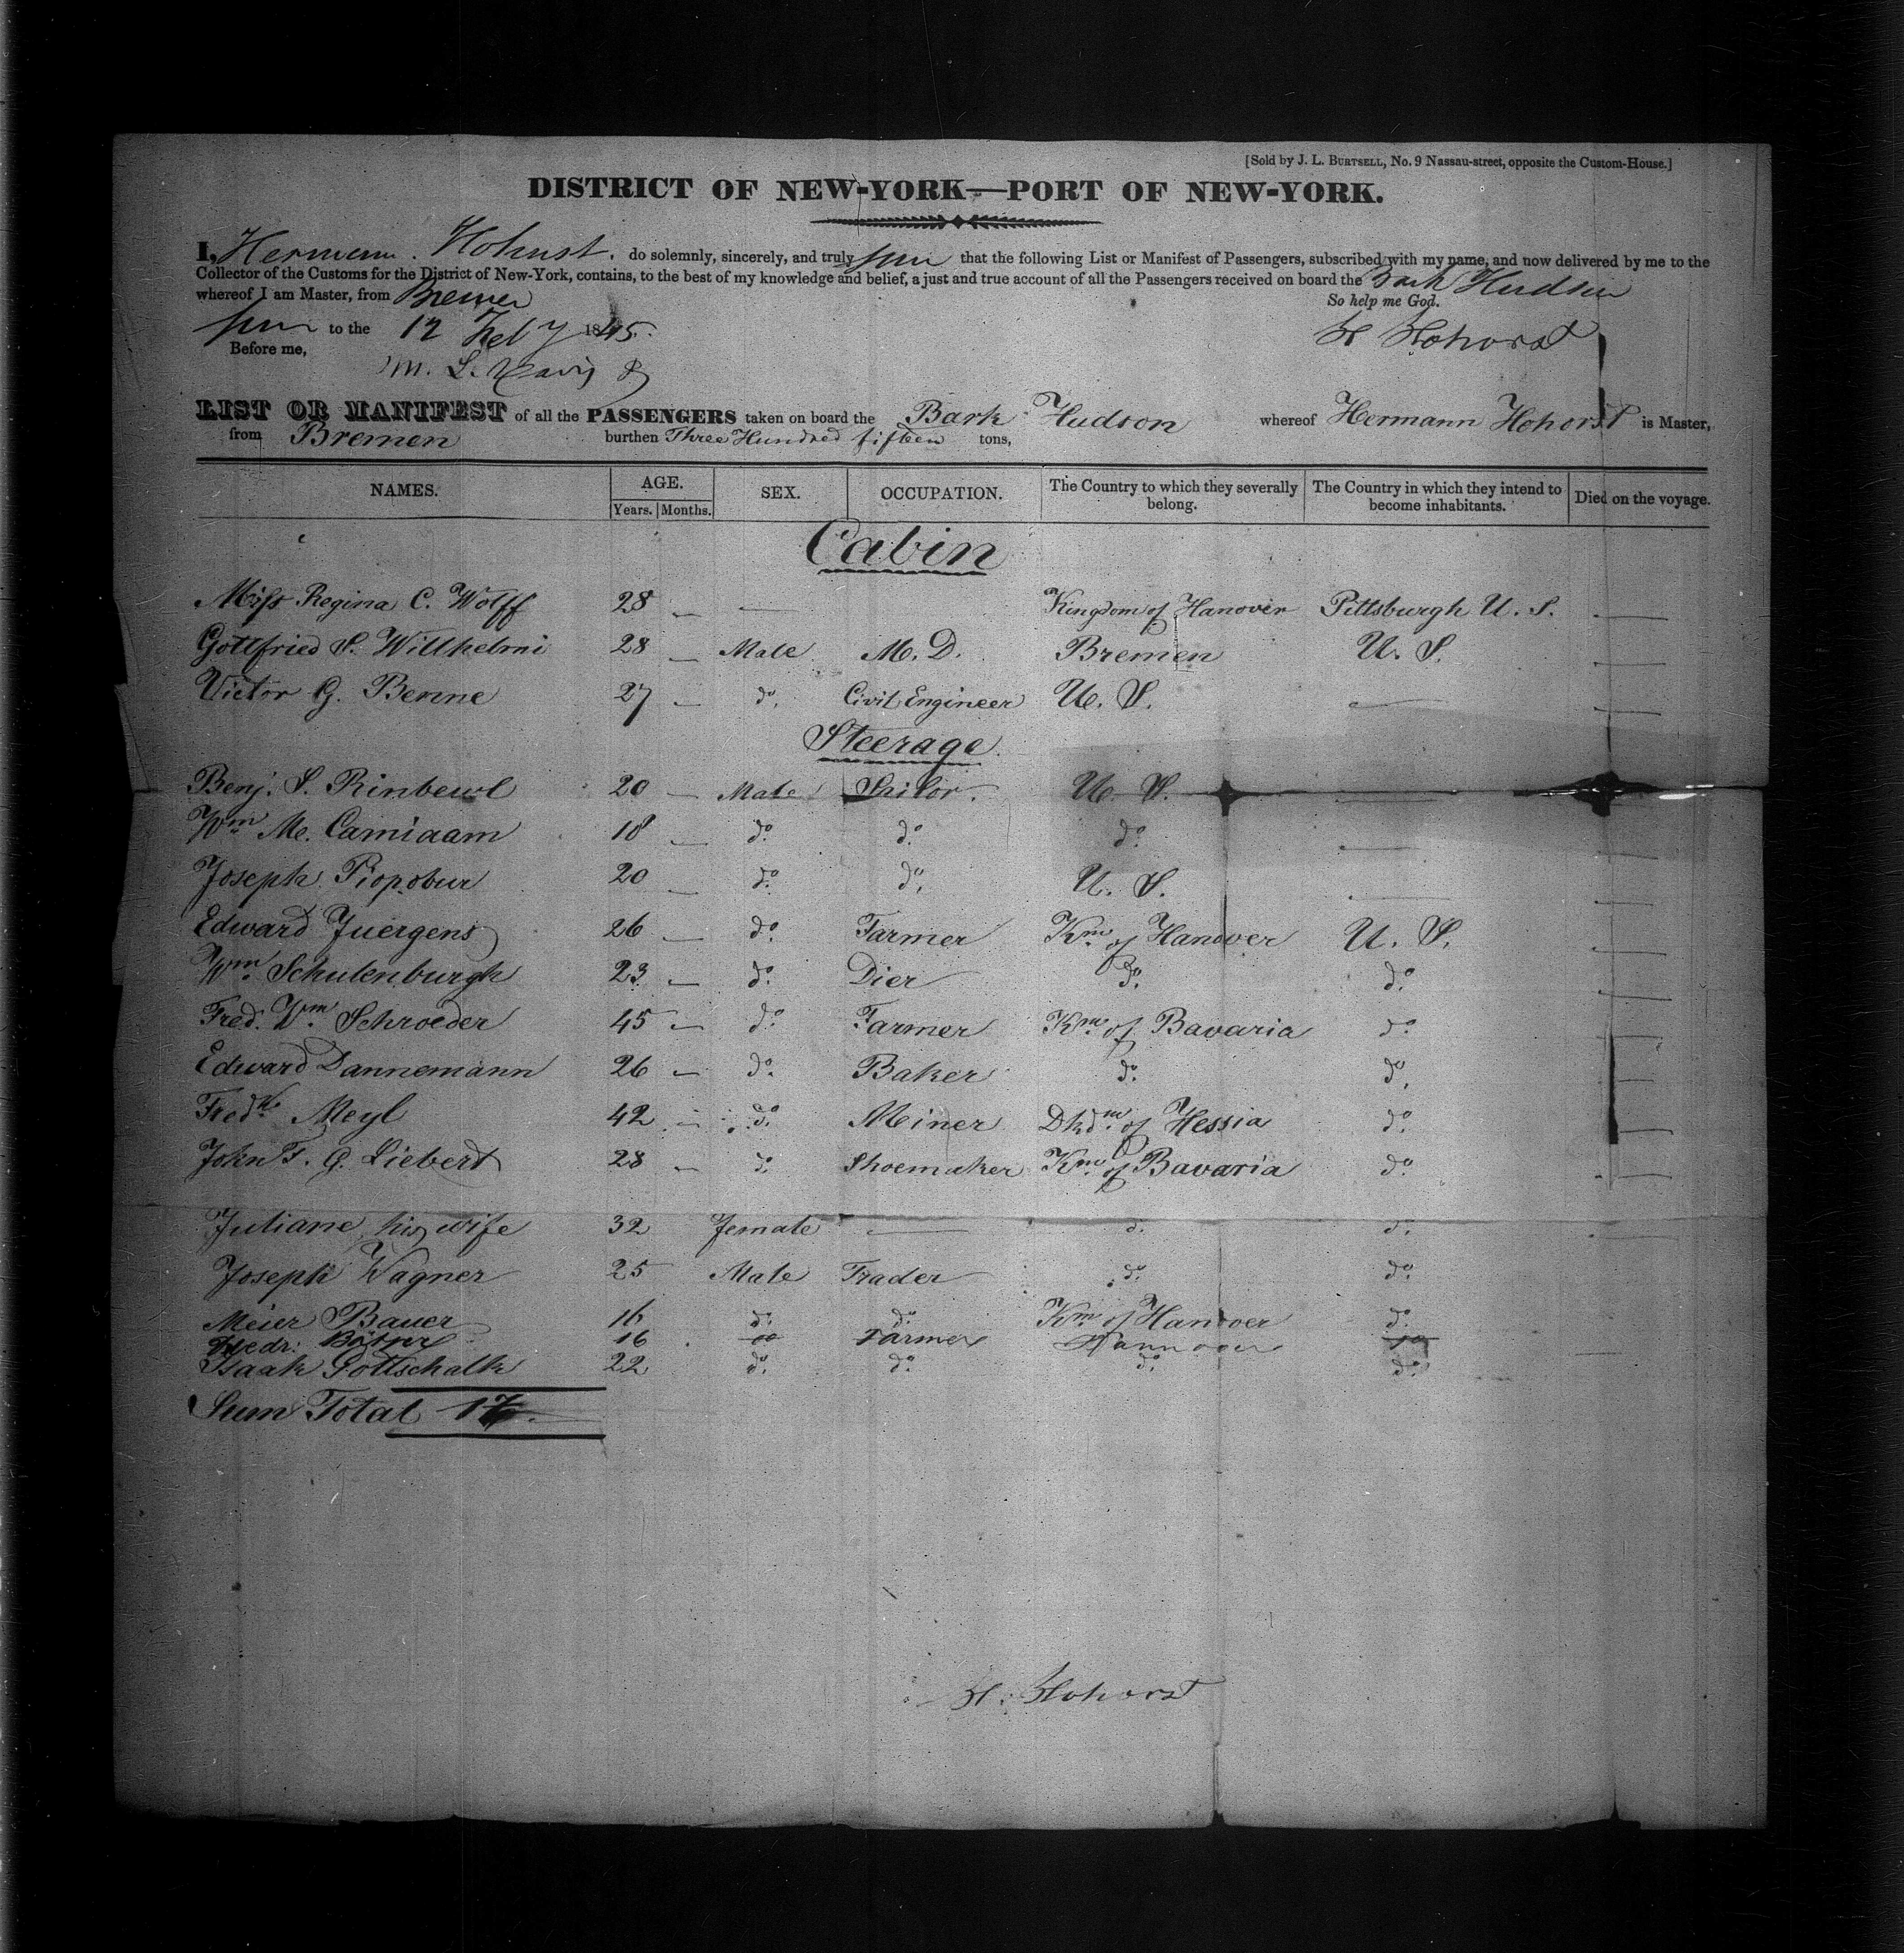 [Sold by J. L. BURTSELL, No. 9 Nassau-street, opposite the Custom-House.]
DISTRICT OF NEW-YORK—PORT OF NEW-YORK.
I, Hermann Hohorst. do solemnly, sincerely, and truly that the following List or Manifest of Passengers, subscribed with my name, and now delivered by me to the
Collector of the Customs for the District of New-York, contains, to the best of my knowledge and belief, a just and true account of all the Passengers received on board the Bark Hudson
whereof I am Master, from Bremen
So help me God.
to the 12 Feby 1845.
H Hohorst
Before me,
LIST OR MANIFEST of all the PASSENGERS taken on board the Bark Hudson whereof Hermann Hohorst is Master,
from Bremen burthen Three Hundred fifteen tons,
NAMES. AGE. Years. Months. SEX. OCCUPATION. The Country to which they severally belong. The Country in which they intend to become inhabitants. Died on the voyage.
Cabin
Miss Regina C. Wolff 28 — — Kingdom of Hanover Pittsburgh U. S. —
Gottfried S. Willhelmi 28 — Male M. D. Bremen U. S. —
Victor G. Benne 27 — do. Civil Engineer U. S. — —
Steerage
Benj. S. 20 — Male Sailor. U. S. — —
Wm. Mc. 18 — do. do. do. — —
Joseph 20 — do. do. U. S. — —
Edward Juergens 26 — do. Farmer Km. of Hanover U. S. —
Wm. Schulenburgh 23 — do. Dier do. do. —
Fred. Wm. Schroeder 45 — do. Farmer Km. of Bavaria do. —
Edward Dannemann 26 — do. Baker do. do. —
Fredk. Meyl 42 — do. Miner Dkdm. of Hessia do. —
John F. G. Liebert 28 — do. Shoemaker Km. of Bavaria do. —
Juliane, his wife 32 female — d. d. —
Joseph Wagner 25 Male Trader do. do.
Meier Bauer 16 do. do. Km. of Hanover do.
Fredr. 16 do Farmer Hannover do —
Isaak Gottschalk 22 do. do. do. do.
Sum Total 17.
H. Hohorst